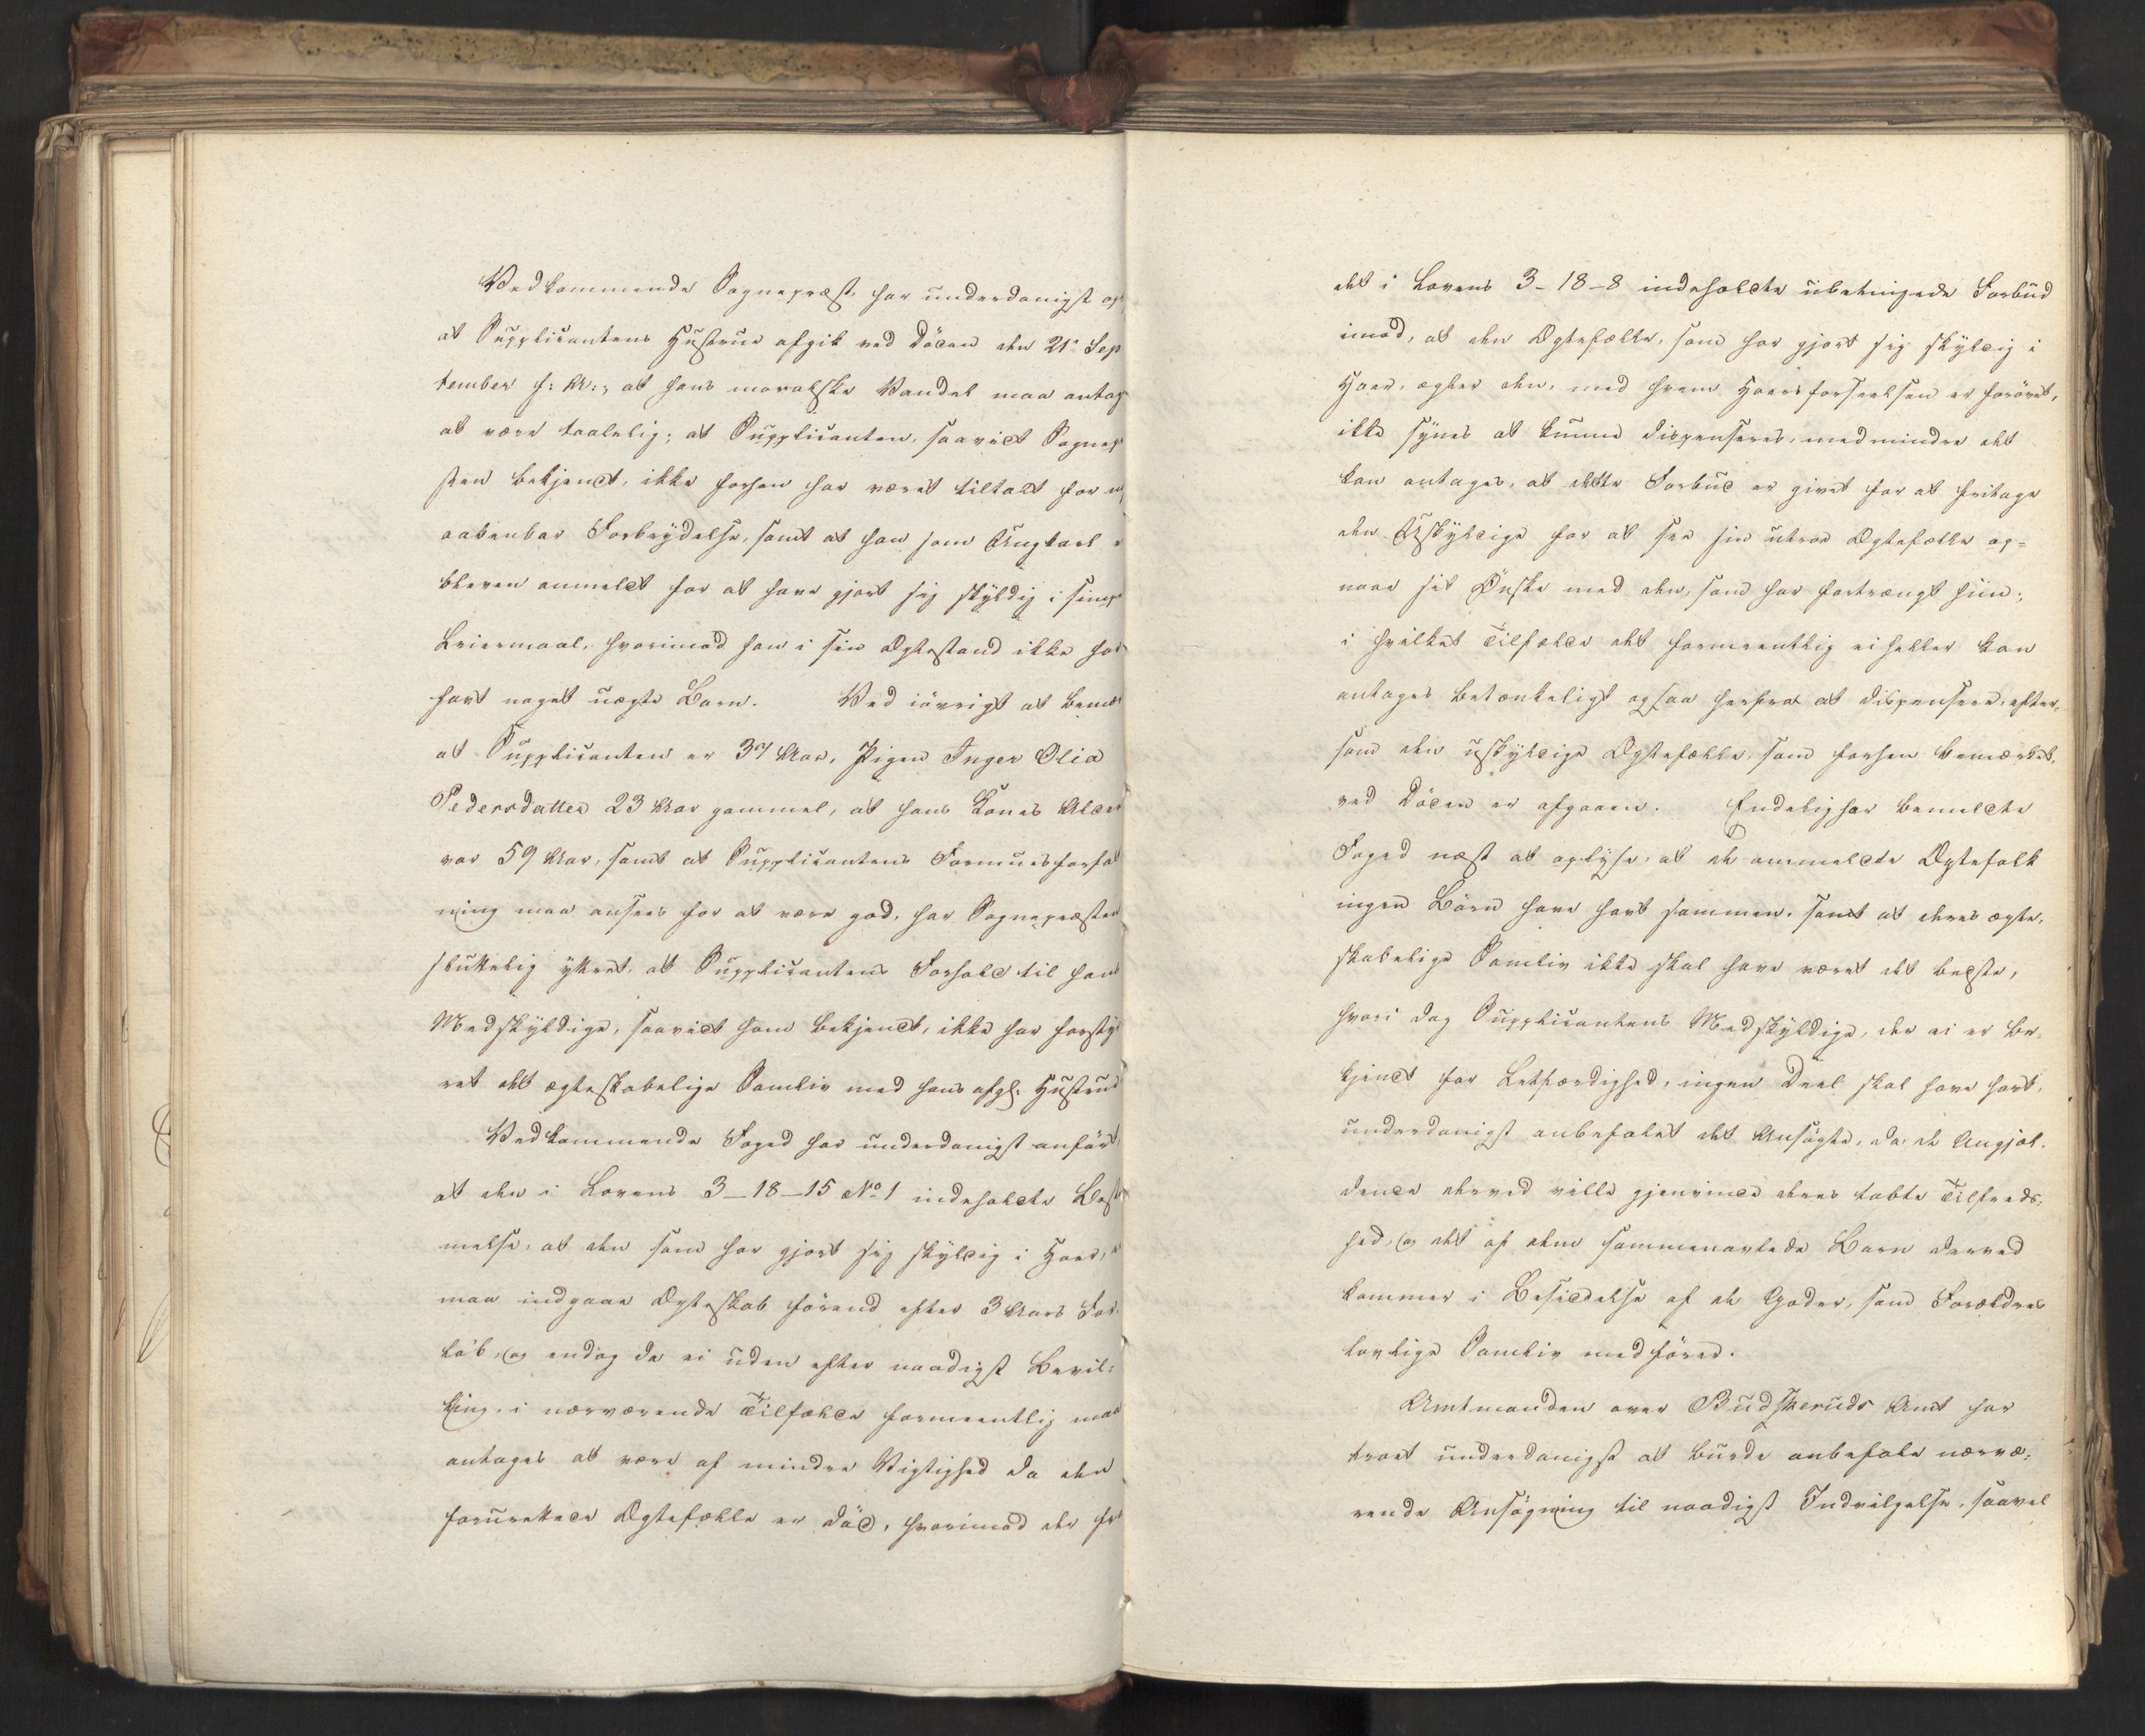 Vedkommende Sognepræst har underdanigst op
at Supplicantens Hustrue afgik ved Döden den 21de Sep
tember f: A:, at hans moralske Vandel maa antag
at være taalelig; at Supplicanten, saavidt Sognep
sten bekjendt, ikke forhen har været tiltalt for n
aabenbar Forbrydelse, samt at han som Ungkarl e
bleven anmeldt for at have gjort sig skyldig i simpe
Leiermaal, hvorimod han i sin Ægtestand ikke har
havt noget uægte Barn. Ved iövrigt at bemær
at Supplicanten er 37 Aar, Pigen Inger Olia
Pedersdatter 23 Aar gammel, at hans Kones Alder
var 59 Aar, samt at Supplicantens Formuesforfat
ning maa ansees for at være god, har Sognepræsten
sluttelig yttret, at Supplicantens Forhold til hans
Medskyldige, saavidt ham bekjendt, ikke har forstyr
ret det ægteskabelige Samliv med hans afg: Hustrue
Vedkommende Foged har underdanigst anfört,
at den i Lovens 3-18-15 No 1 indeholdte Best
melse, at den som har gjort sig skyldig i Hoer, ei
maa indgaae Ægteskab förend efter 3 Aars For
löb, og endog da ei uden efter naadigst Bevil:
ling, i nærværende Tilfælde formeentlig maa
antages at være af mindre Vigtighed da den
forurettede Ægtefælle er död, hvorimod der fra
det i Lovens 3-18-8 indeholdte ubetingede Forbud
imod, at den Ægtefælle, som har gjort sig skyldig i
Hoer, ægter den, med hvem Hoersforseelsen er forövet,
ikke synes at kunne dispenseres, medmindre det
kan antages, at dette Forbud er givet for at fritage
den Uskyldige for at see sin utroe Ægtefælle op=
naae sit Önske med den, som har fortrængt hiin;
i hvilket Tilfælde det formeentlig ei heller kan
antages betænkeligt ogsaa herfra at dispensere, efter,
som den uskyldige Ægtefælle, som forhen bemærket,
ved Döden er afgaaen. Endelig har bemeldte
Foged næst at oplyse, at de ommeldte Ægtefolk
ingen Börn have havt sammen, samt at deres ægte,
skabelige Samliv ikke skal have været det bedste,
hvori dog Supplicantens Medskyldige, der ei er be,
kjendt for Letfærdighed, ingen Deel skal have havt,
underdanigst anbefalet det Ansögte, da de Angjæl.
dende derved ville gjenvinde deres tabte Tilfreds:
hed, og det af dem sammenavlede Barn derved
kommer i Besiddelse af de Goder, som Forældres
lovlige Samliv medförer.
Amtmanden over Budskeruds Amt har
troet underdanigst at burde anbefale nærvæ:
rende Ansögning til naadigst Indvilgelse, saavel